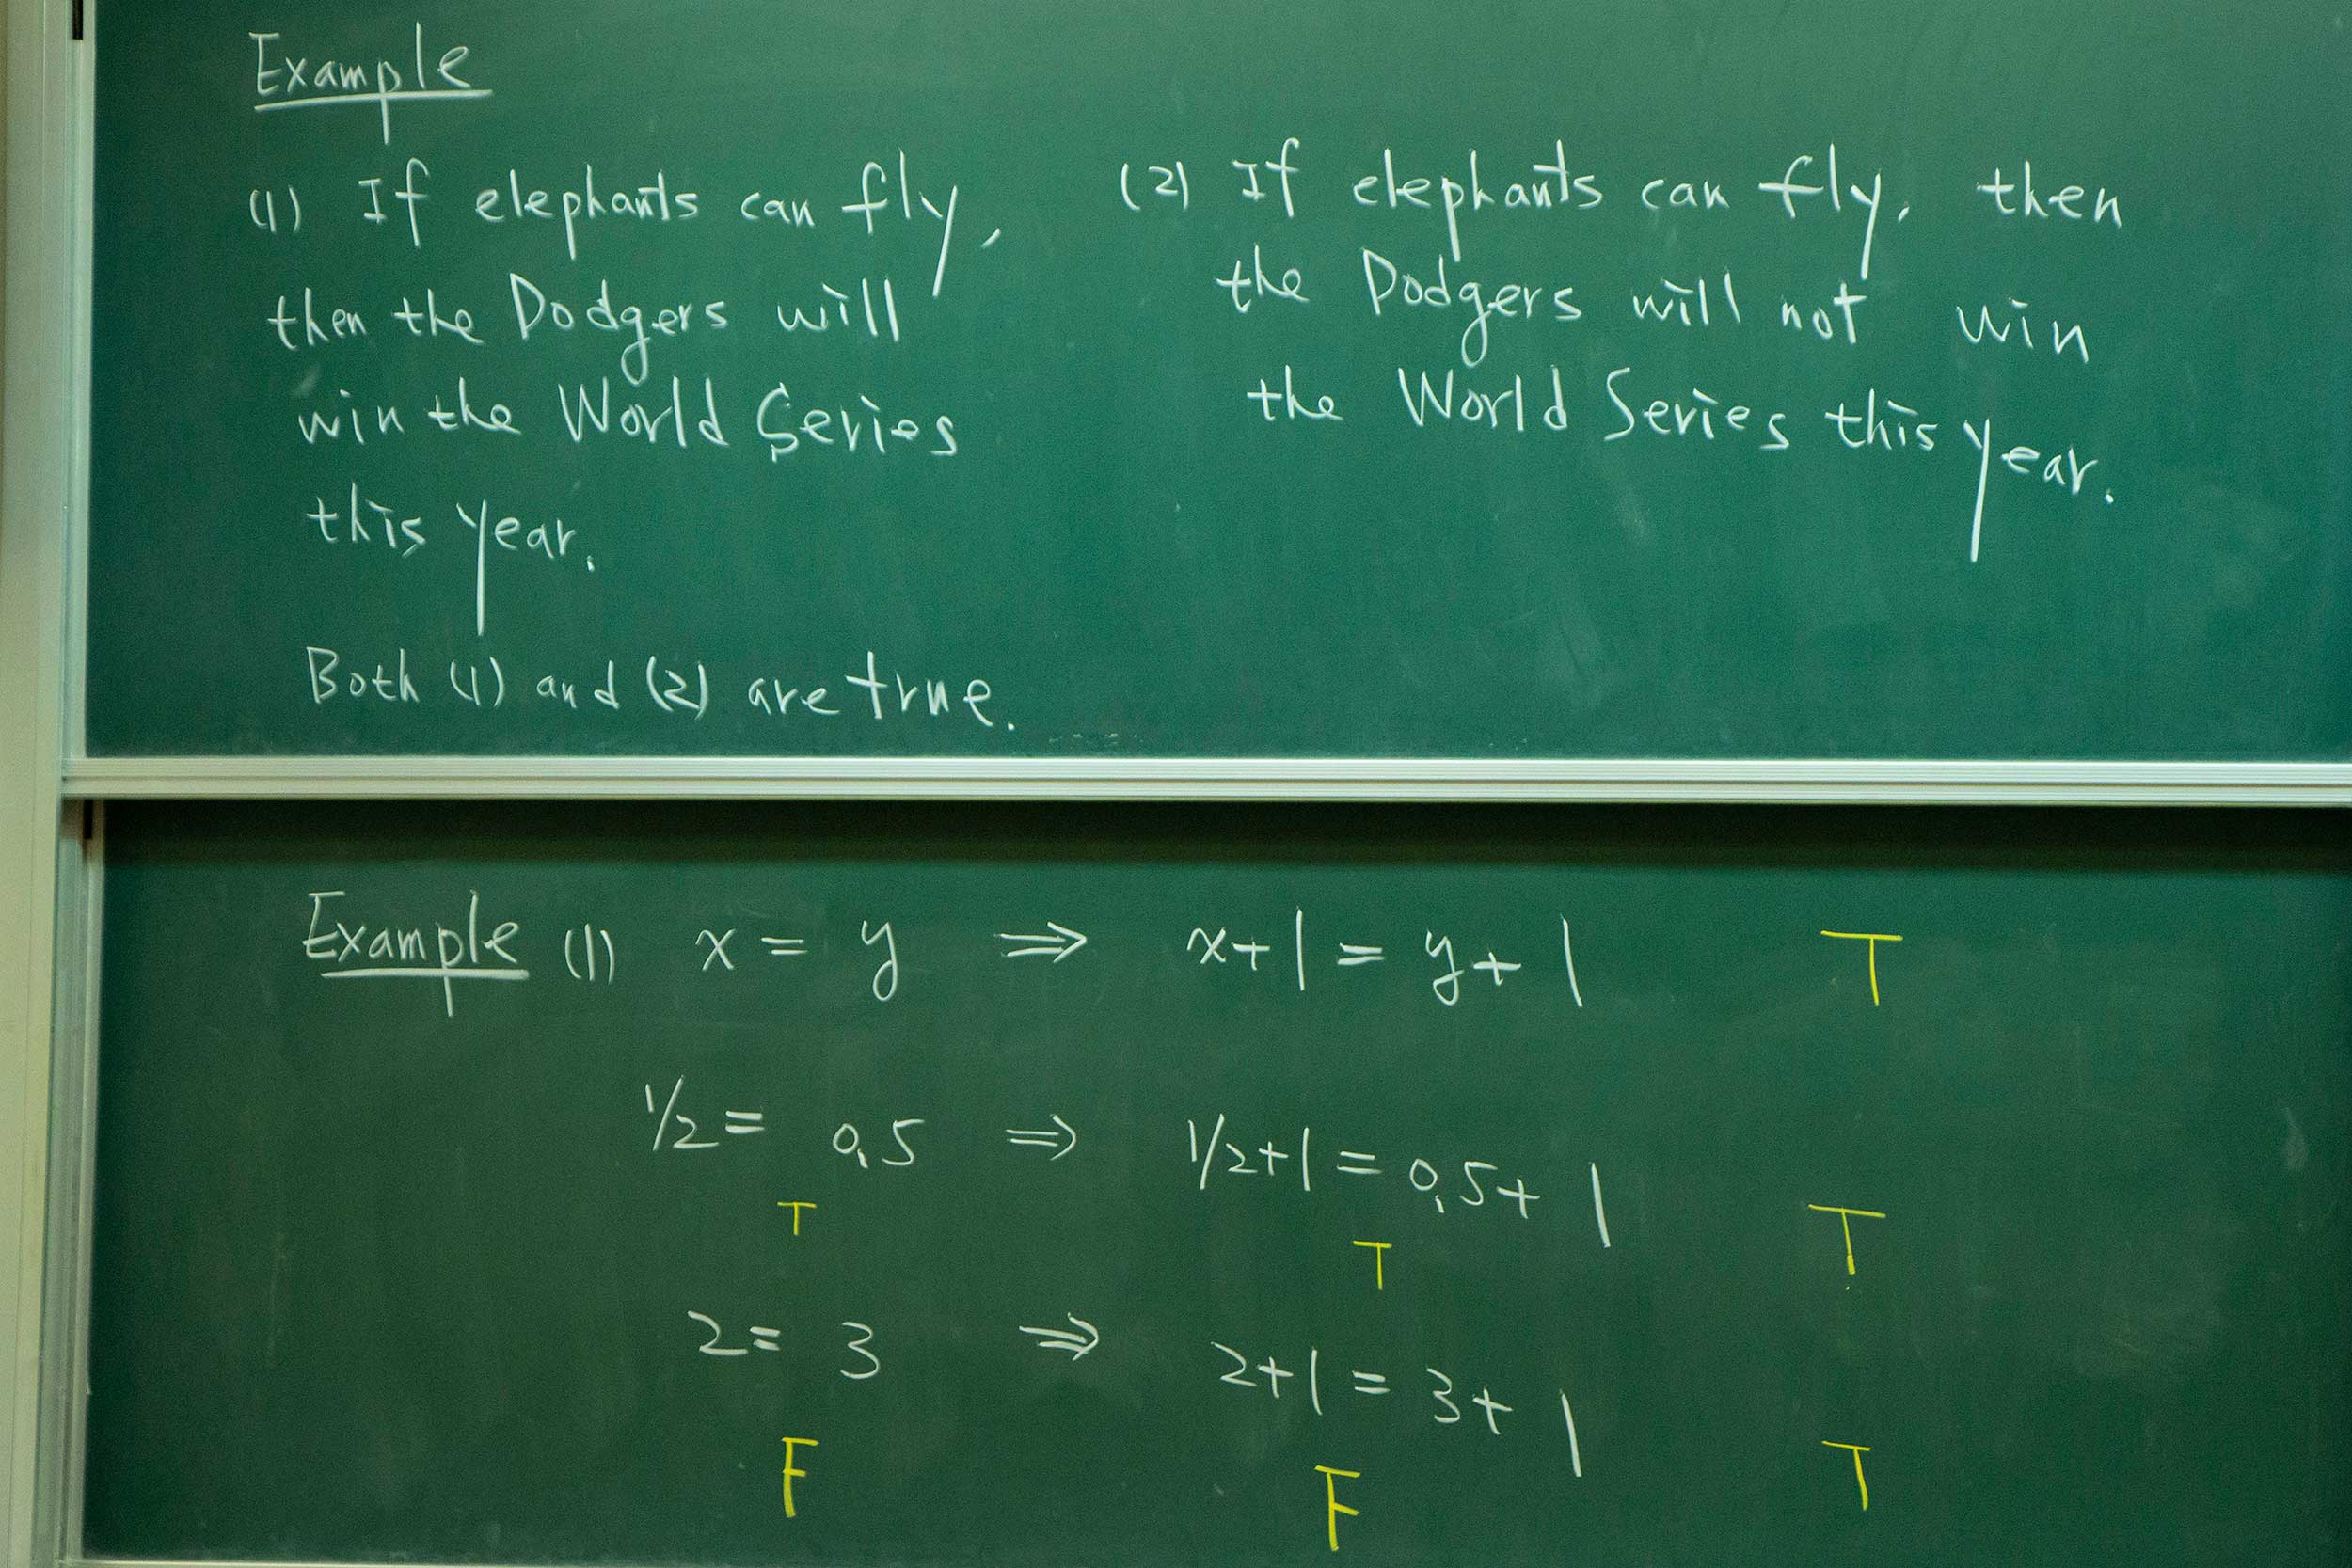 Example
(1) If elephants can fly,
then the Dodgers will
win the World Series
this year.
(2) If elephants can fly, then
the Dodgers will not win
the World Series this year.
Both (1) and (2) are true.
Example (1) x = y ⇒ x+1 = y+1 T
1/2 = 0.5 ⇒ 1/2+1 = 0.5+1 T
T T
2 = 3 ⇒ 2+1 = 3+1
F F T